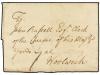 To
John Russell Esqr. Clerk
of the Cheque of His Majts
Yard at
Woolwich